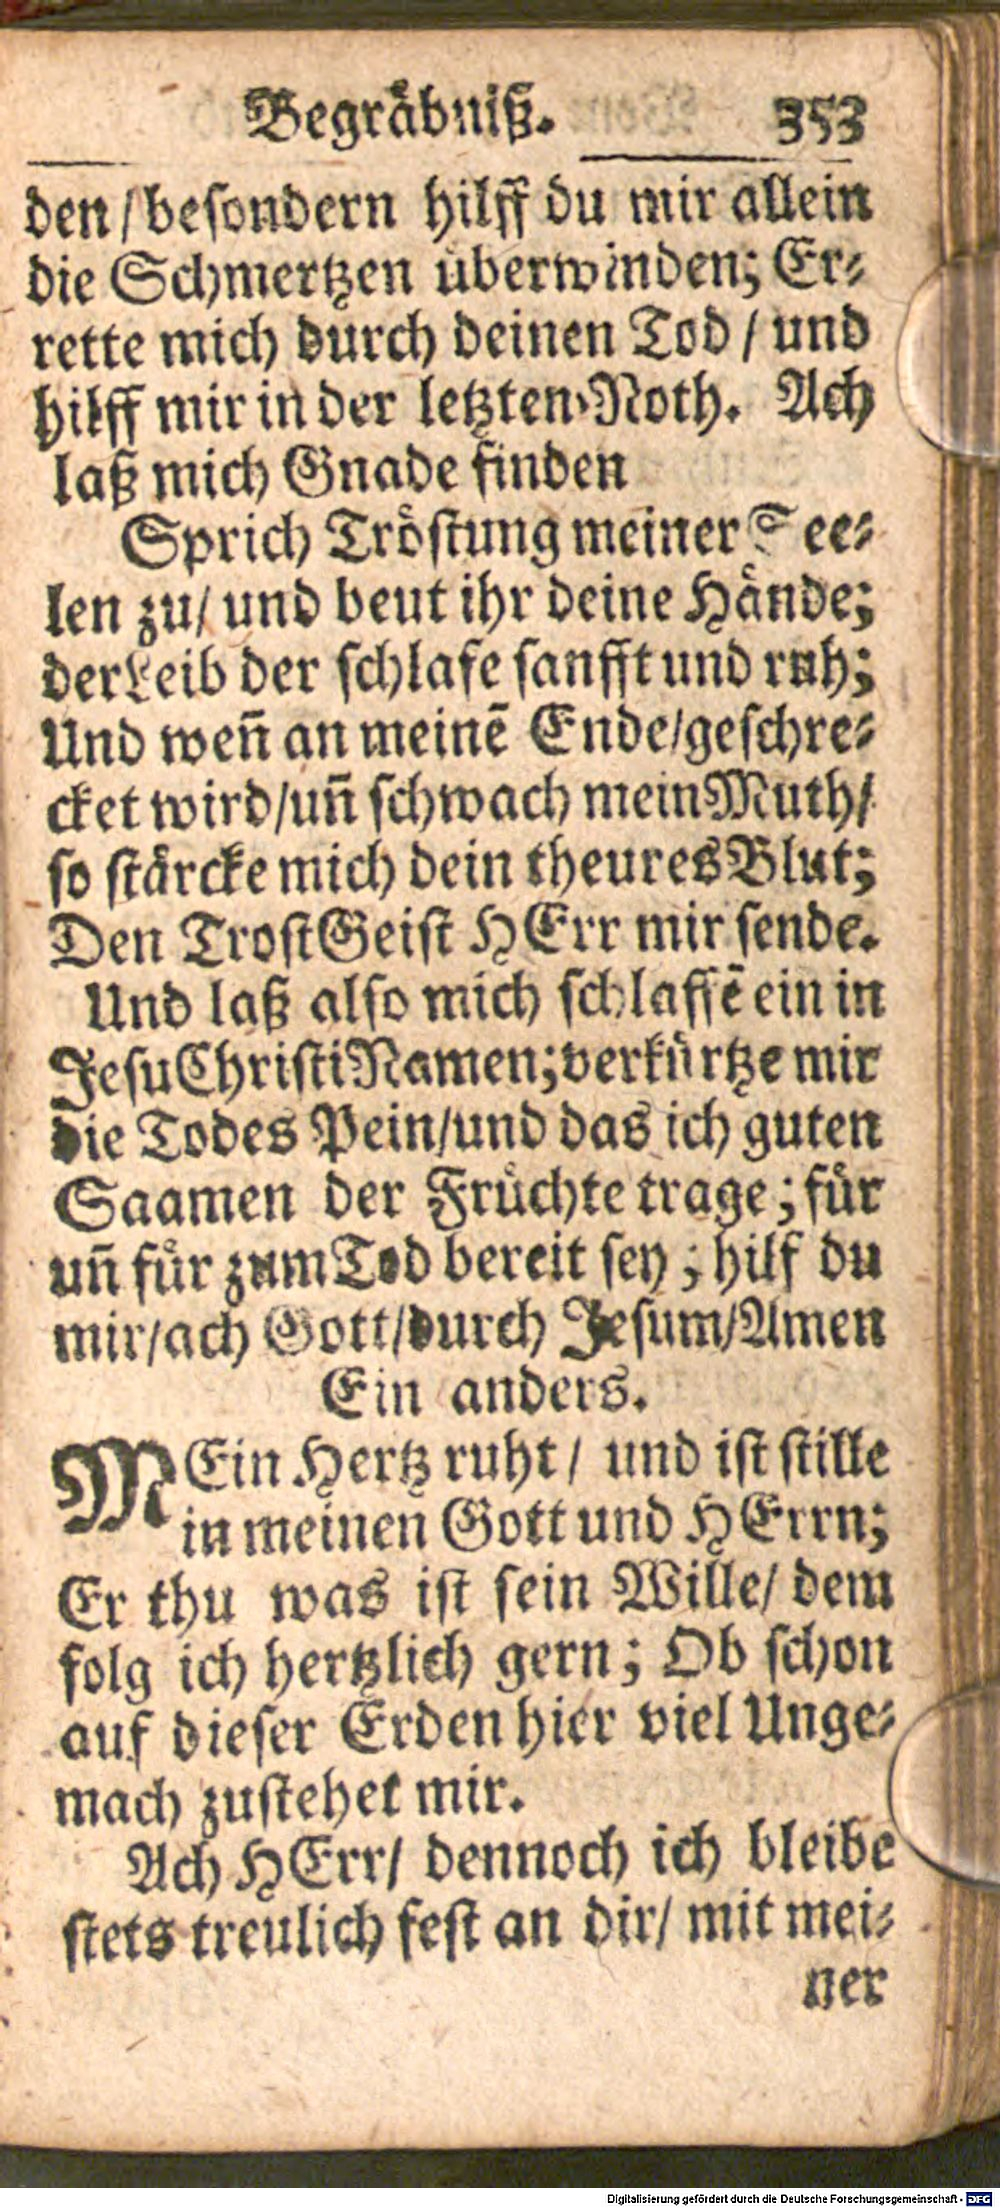 Begräbniß. 353
den / besondern hilff du mir allein
die Schmertzen überwinden; Er-
rette mich durch deinen Tod / und
hilff mir in der letzten Noth. Ach
laß mich Gnade finden
Sprich Tröstung meiner See-
len zu / und beut ihr deine Hände;
der Leib der schlafe sanfft und ruh;
Und weñ an meinē Ende / geschre-
cket wird / uñ schwach mein Muth /
so stärcke mich dein theures Blut;
Den Trost Geist HErr mir sende.
Und laß also mich schlaffē ein in
Jesu Christi Namen; verkürtze mir
die Todes Pein / und das ich guten
Saamen der Früchte trage; für
uñ für zum Tod bereit sey; hilf du
mir / ach Gott / durch Jesum / Amen
Ein anders.
MEin Hertz ruht / und ist stille
in meinen Gott und HErrn;
Er thu was ist sein Wille / dem
folg ich hertzlich gern; Ob schon
auf dieser Erden hier viel Unge-
mach zustehet mir.
Ach HErr / dennoch ich bleibe
stets treulich fest an dir / mit mei-
ner
Digitalisierung gefördert durch die Deutsche Forschungsgemeinschaft - DFG